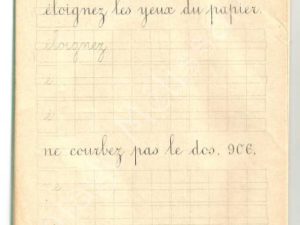 éloignez les yeux du papier.
éloignez
é
é
ne courbez pas le dos. 906.
n e